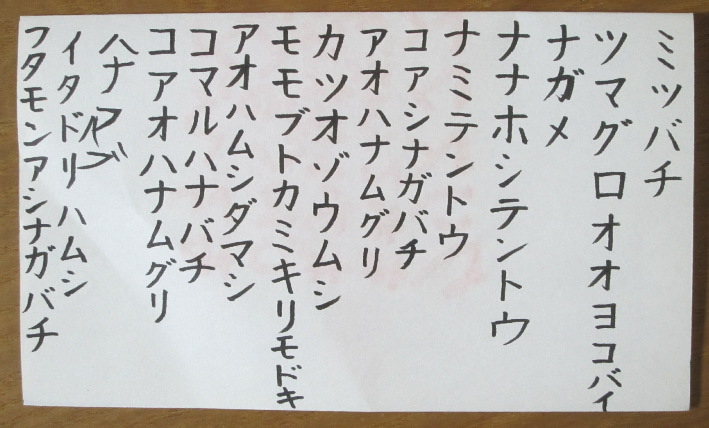 ミツバチ
ツマグロオオヨコバイ
ナガメ
ナナホシテントウ
ナミテントウ
コアシナガバチ
アオハナムグリ
カツオゾウムシ
モモブトカミキリモドキ
アオハムシダマシ
コマルハナバチ
コアオハナムグリ
ハナアブ
イタドリハムシ
フタモンアシナガバチ